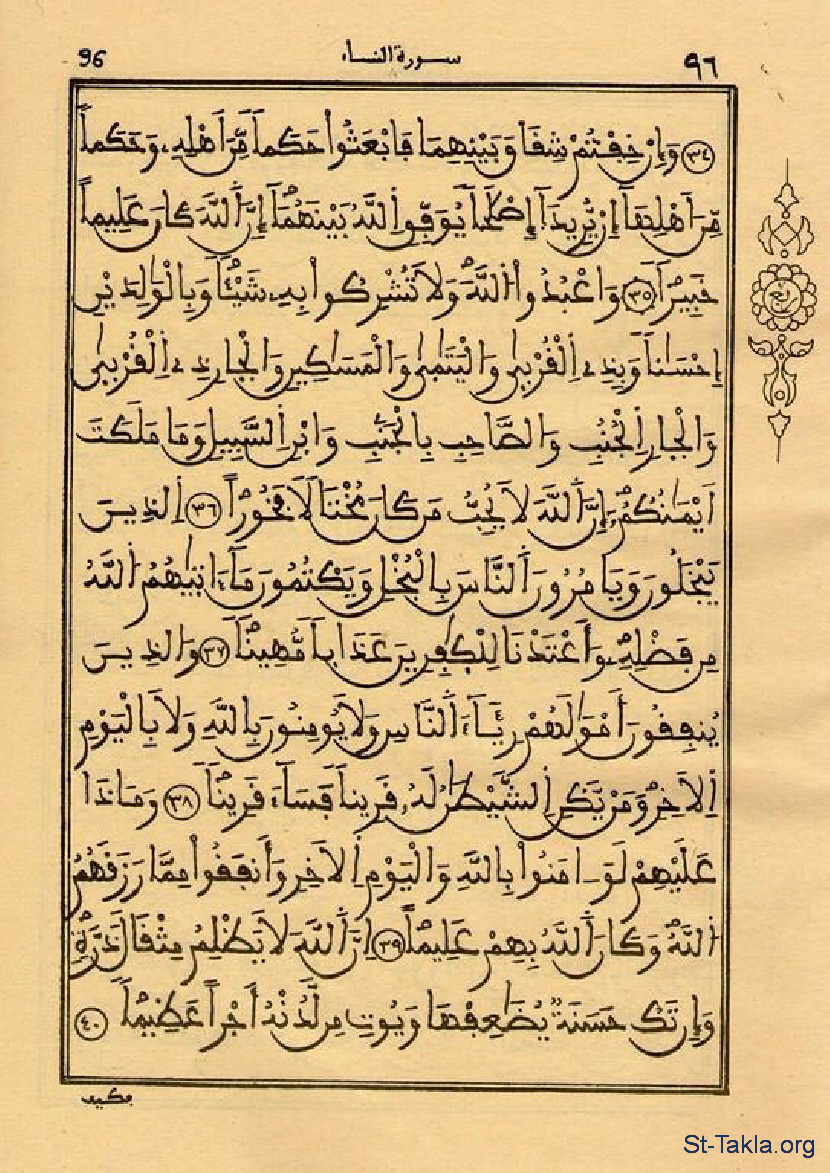 ٩٦ سورة النساء 96
٣٤ وَإِنْ خِفْتُمْ شِقَاقَ بَيْنِهِمَا فَابْعَثُواْ حَكَماً مِّنَ اَهْلِهِۦ وَحَكَماً
مِّنَ اَهْلِهَآ إِنْ يُّرِيدَآ إِصْلَٰحاً يُوَفِّقِ اِ۬للَّهُ بَيْنَهُمَآۖ إِنَّ اَ۬للَّهَ كَانَ عَلِيماً
خَبِيراًۖ ٣٥ وَاعْبُدُواْ اُ۬للَّهَ وَلَا تُشْرِكُواْ بِهِۦ شَيْـٔاًۖ وَبِالْوَٰلِدَيْنِ
إِحْسَٰناً وَبِذِے اِ۬لْقُرْبَىٰ وَالْيَتَٰمَىٰ وَالْمَسَٰكِينِ وَالْجَارِ ذِے اِ۬لْقُرْبَىٰ
وَالْجَارِ اِ۬لْجُنُبِ وَالصَّاحِبِ بِالْجَنۢبِ وَابْنِ اِ۬لسَّبِيلِ وَمَا مَلَكَتَ
اَيْمَٰنُكُمُۥٓۖ إِنَّ اَ۬للَّهَ لَا يُحِبُّ مَن كَانَ مُخْتَالاً فَخُوراًۖ ٣٦ اِ۬لذِينَ
يَبْخَلُونَ وَيَامُرُونَ اَ۬لنَّاسَ بِالْبُخْلِ وَيَكْتُمُونَ مَآ ءَاتَىٰهُمُ اُ۬للَّهُ
مِن فَضْلِهِۦۖ وَأَعْتَدْنَا لِلْكَٰفِرِينَ عَذَاباً مُّهِيناًۖ ٣٧ وَالذِينَ
يُنفِقُونَ أَمْوَٰلَهُمْ رِئَآءَ اَ۬لنَّاسِ وَلَا يُومِنُونَ بِاللَّهِ وَلَا بِالْيَوْمِ
اِ۬لَاخِرِۖ وَمَنْ يَّكُنِ اِ۬لشَّيْطَٰنُ لَهُۥ قَرِيناً فَسَآءَ قَرِيناًۖ ٣٨ وَمَاذَا
عَلَيْهِمْ لَوَ اٰمَنُواْ بِاللَّهِ وَالْيَوْمِ اِ۬لَاخِرِ وَأَنفَقُواْ مِمَّا رَزَقَهُمُ
اُ۬للَّهُۖ وَكَانَ اَ۬للَّهُ بِهِمْ عَلِيماًۖ ٣٩ إِنَّ اَ۬للَّهَ لَا يَظْلِمُ مِثْقَالَ ذَرَّةٍۖ
وَإِن تَكُ حَسَنَةٌ يُضَٰعِفْهَا وَيُوتِ مِن لَّدُنْهُ أَجْراً عَظِيماًۖ ٤٠
فكيف
St-Takla.org